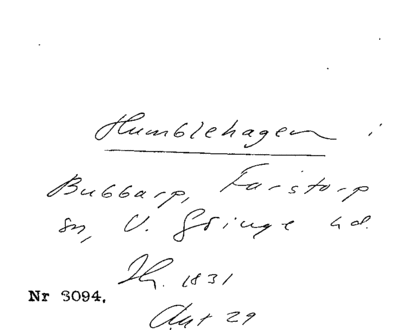 Humblehagen i
Bubbarp, Farstorp
sn, V. Göinge hd.
Th. 1831
Nr 3094.
Akt 29